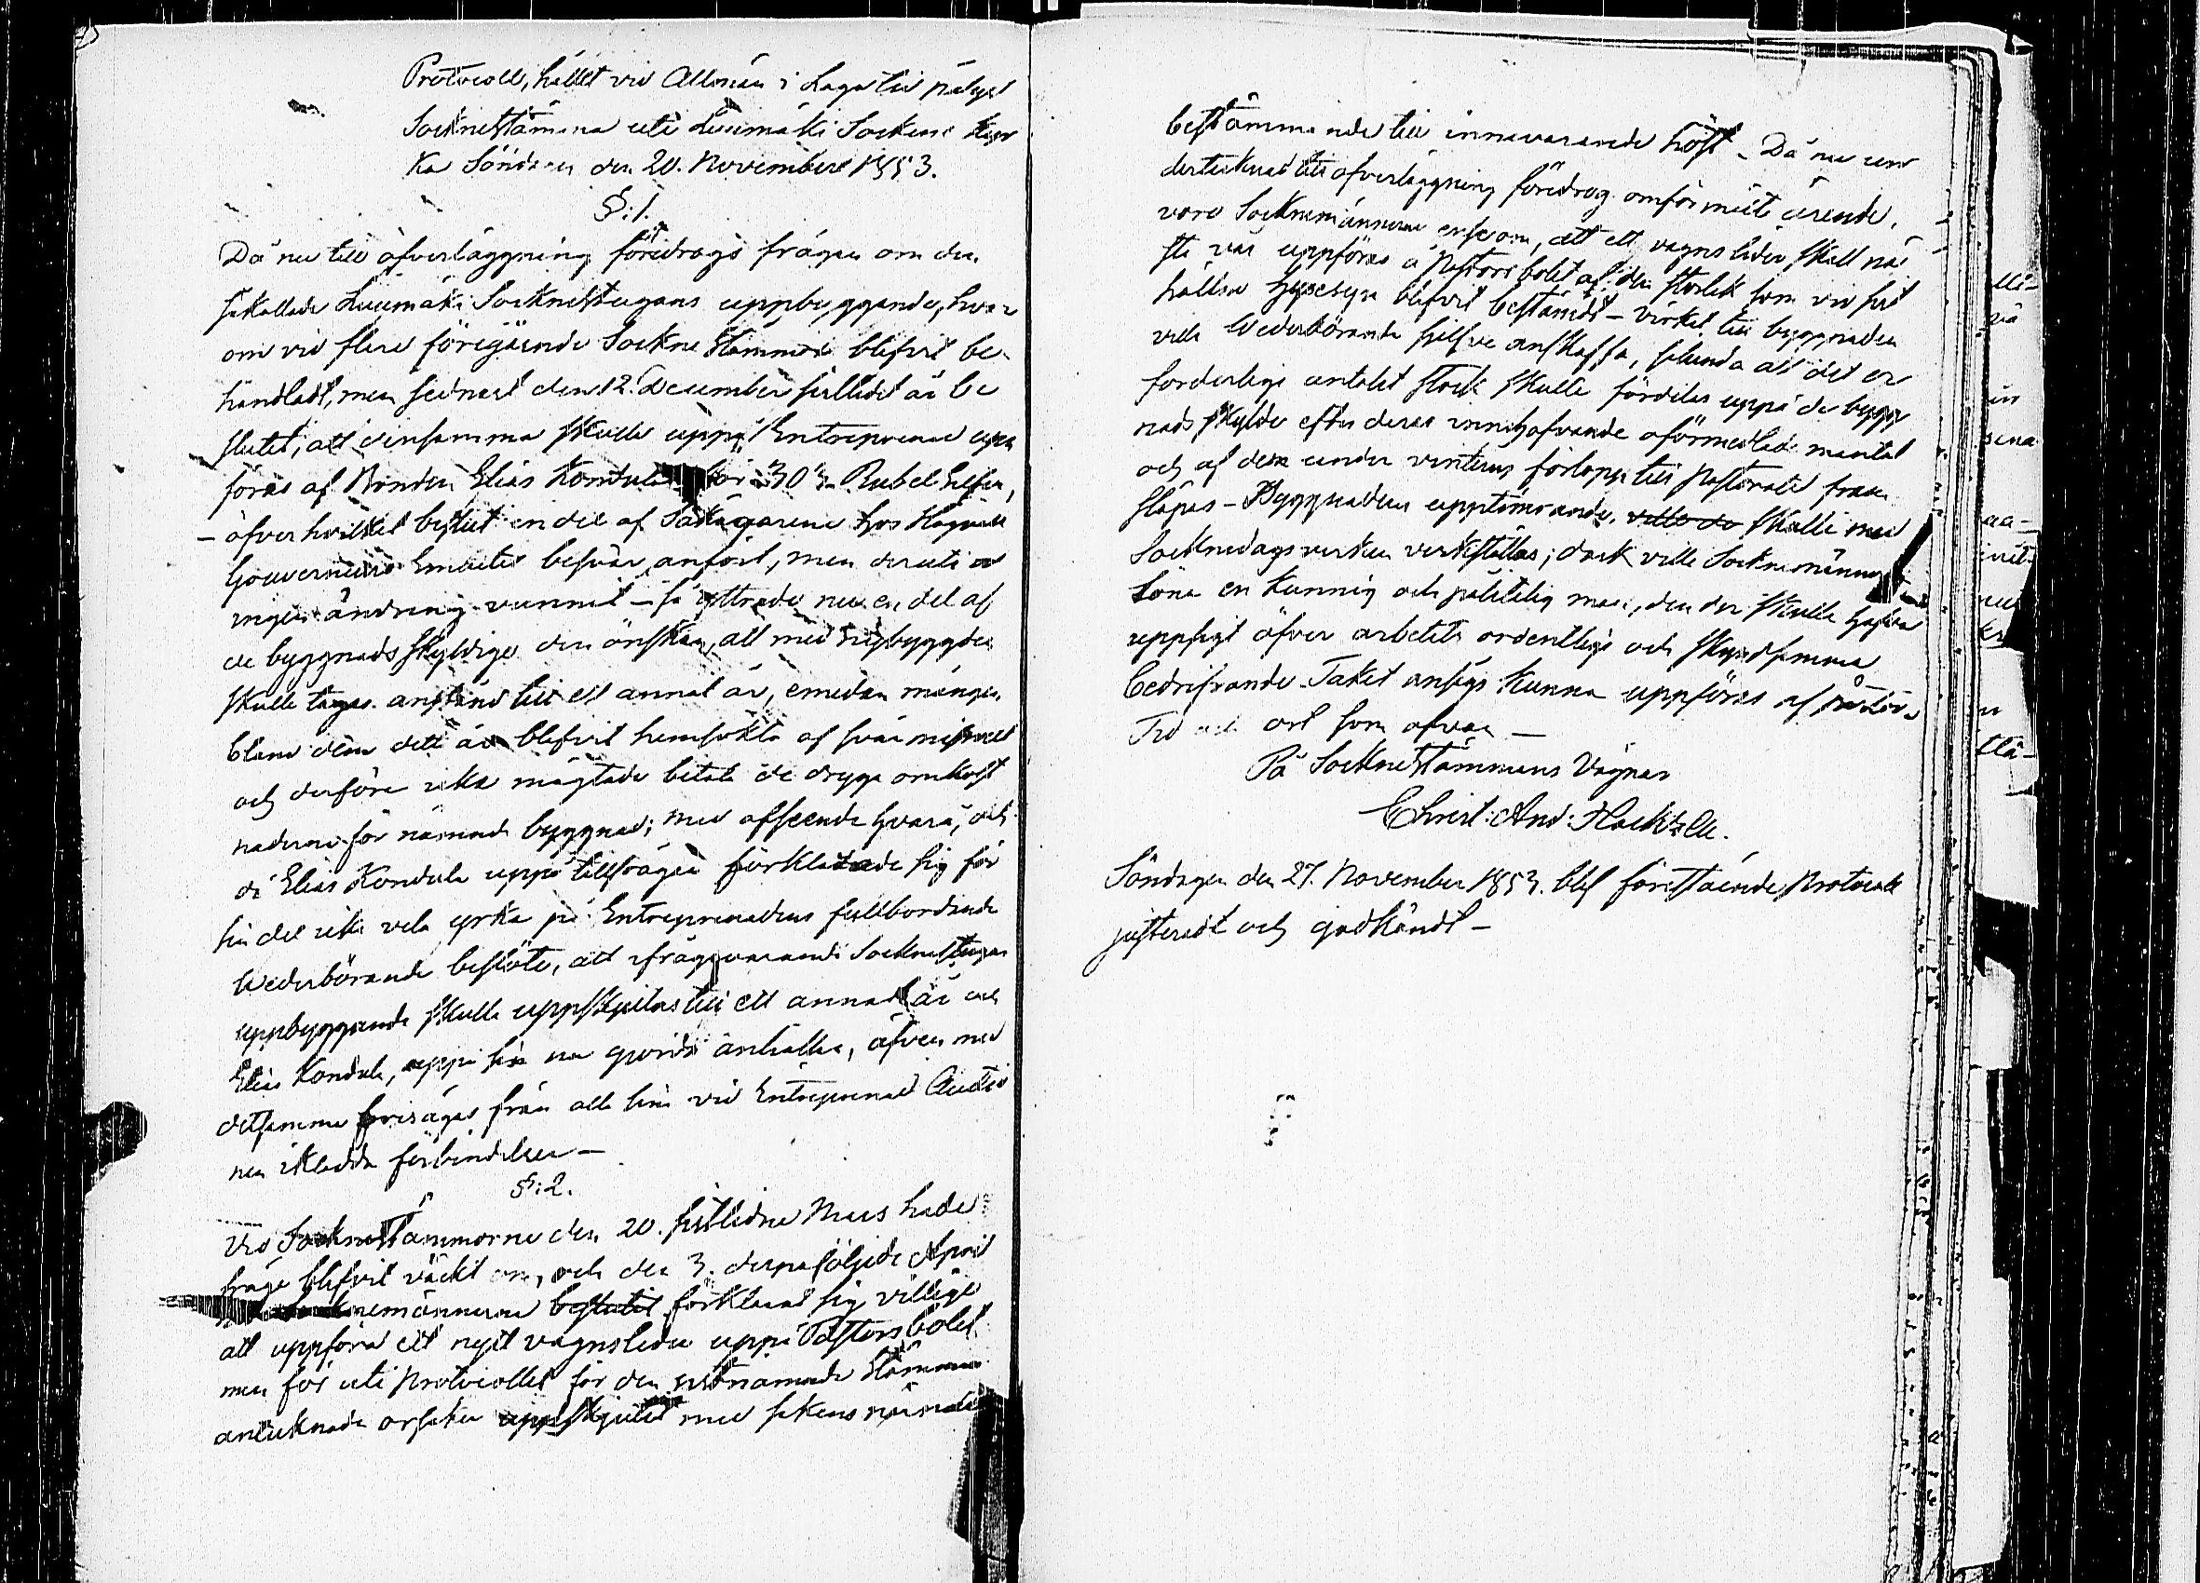 Protocoll, hållet vid Allmän i Laga tid pålyst
Socknestämma uti Luumäki Sockens Kyr
ka Söndagen den 20. November 1853.
§:1.
Då nu till öfverläggning föredrogs frågan om den
såkallade Luumäki Socknestugans uppbyggande, hvar
om vid flere föregående Sockne Stämmor blifvit be-
handladt, men sednast den 12. December sistledit år be
slutit, att densamma skulle uppå Entreprenad upp
föras af Bonden Elias Kondula för 30 Rubel Silfver,
- öfver hvilket beslut en del af Sakägarene hos Högvälb
Gouverneurs Embetet besvär anfört, men deruti ej
ingen ändring vunnit - så yttrade nu en del af
de byggnadsskyldige den önskan, att med nybyggden
skulle tagas anstånd till ett annat år, emedan mången
bland dem detta år blifvit hemsökta af svår missvext
och derföre icke mägtade betala de dryga omkost
naderne för nämnde byggnad; med afseende hvarå, och
då Elias Kondula uppå tillfrågan förklarade sig för
sin del icke vela yrka på Entreprenadens fullbordande
Wederbörande beslöto, att ifrågavarande Socknestugas
uppbyggande skulle uppskjutas till ett annat år och
Elias Kondula, uppå sin nu gjorda anhållan, äfven med
detsamma frisägas från alla sina vid Entreprenad Auctio
nen iklädda förbindelser -
§:2.
Vid Socknestämmorne den 20. sistledne Mars hade
fråga blifvit väckt om, och den 3. derpåföljde April
Socknemännerne beslutit förklarat sig villige
att uppföra ett nytt vagnslider uppå Pastorsbolet
men för uti Protocollet för den sistnämnde Stämman
antecknade orsaker uppskjutit med sakens närmare
bestämmande till innevarande höst - Då nu un
dertecknad till öfverläggning föredrog omförmälte ärende,
voro Socknemännerne ense om, att ett vagnslider skall nä
sta vår uppföras å Pastorsbolet af den storlek som vid sist
hållne Husesyn blifvit bestämdt - virket till byggnaden
ville Wederbörande sjelfve anskaffa, sålunda att det er
forderliga antalet stock skulle fördelas uppå de bygg
nads skyldige efter deras innehafvande oförmedlade mantal
och af dem under vinterns förlopp till Pastoratet fram
släpas - Byggnadens upptimrande, ville de skulle med
Socknedagsverken verkställas; dock ville Socknemännerne
löna en kunnig och pålitlig man, den der skulle hafva
uppsigt öfver arbetets ordentliga och skyndsamma
bedrifvande. Taket ansågs kunna uppföras af
Tid och ort som ofvan -
På Socknestämmans Vägnar
Christ: And: Hackzell.
Söndagen den 27. November 1853. blef förestående Protocoll
justeradt och godkändt -